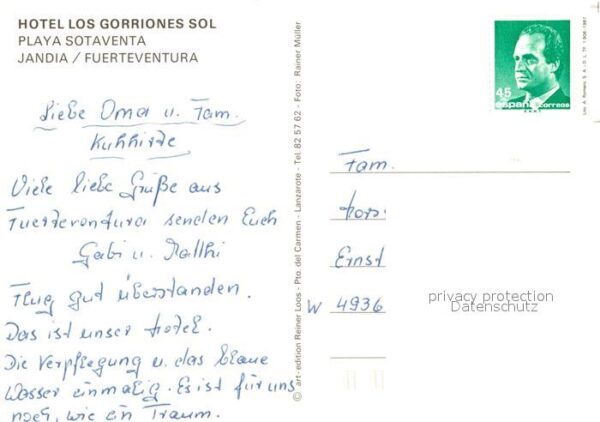 HOTEL LOS GORRIONES SOL
PLAYA SOTAVENTA
JANDIA / FUERTEVENTURA
Liebe Oma u. Fam.
Kuhhirte
Viele liebe Grüße aus
Fuerteventura senden Euch
Gabi u. Matthi
Flug gut überstanden.
Das ist unser Hotel.
Die Verpflegung u. das blaue
Wasser einmalig. Es ist für uns
noch, wie ein Traum.
© art-edition Reiner Loos - Pto. del Carmen - Lanzarote - Tel. 82 57 62 - Foto: Rainer Müller
45
españa correos
Fam.
Hors
Ernst
W 4936
privacy protection
Datenschutz